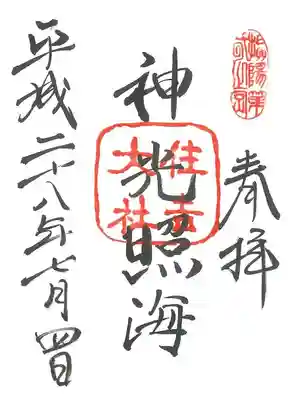 奉拝
神光照海
住吉大社
平成二十八年七月四日